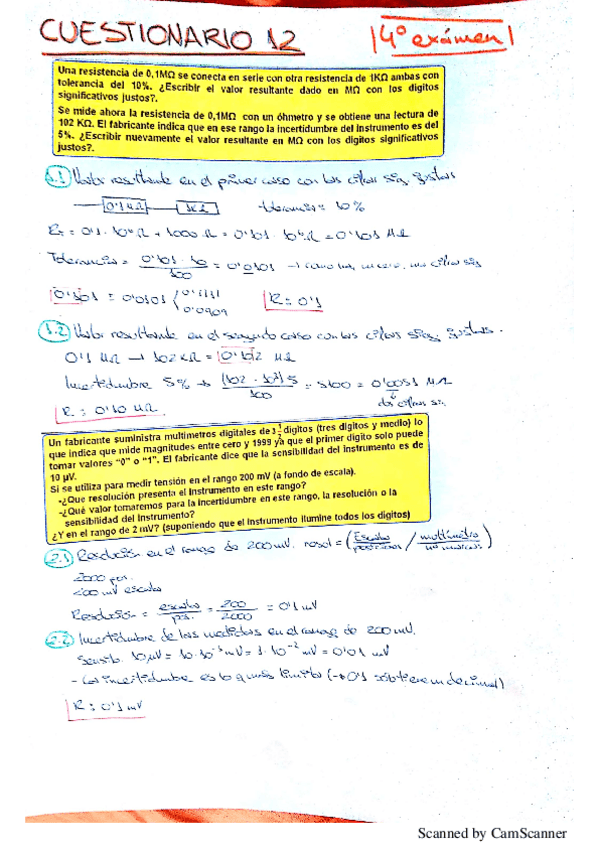 CUESTIONARIO 12
4º exámen
Una resistencia de 0,1MΩ se conecta en serie con otra resistencia de 1KΩ ambas con
tolerancia del 10%. ¿Escribir el valor resultante dado en MΩ con los digitos
significativos justos?.
Se mide ahora la resistencia de 0,1MΩ con un óhmetro y se obtiene una lectura de
102 KΩ. El fabricante indica que en ese rango la incertidumbre del instrumento es del
5%. ¿Escribir nuevamente el valor resultante en MΩ con los digitos significativos
justos?.
1.1 Valor resultante en el primer caso con las cifras sig. justas
0'1MΩ 1KΩ tolerancia = 10%
R = 0'1 · 10⁶Ω + 1000 Ω = 0'101 · 10⁶Ω = 0'101 MΩ
Tolerancia = 0'101 · 10 / 100 = 0'0101 → cifras sig
0'101 ± 0'0101 0'1111
0'0909
R = 0'1
1.2 Valor resultante en el segundo caso con las cifras sig. justas.
0'1 MΩ → 102 KΩ = 0'102 MΩ
Incertidumbre 5% → (102 · 10³) 5 / 100 = 5100 = 0'0051 MΩ
dos cifras sig.
R = 0'10 MΩ
Un fabricante suministra multimetros digitales de 3 ½ digitos (tres digitos y medio) lo
que indica que mide magnitudes entre cero y 1999 ya que el primer digito solo puede
tomar valores "0" o "1". El fabricante dice que la sensibilidad del instrumento es de
10 µV.
Si se utiliza para medir tensión en el rango 200 mV (a fondo de escala).
-¿Que resolución presenta el Instrumento en este rango?
-¿Qué valor tomaremos para la incertidumbre en este rango, la resolución o la
sensibilidad del Instrumento?
¿Y en el rango de 2 mV? (suponiendo que el instrumento ilumine todos los digitos)
2.1 Resolución en el rango de 200 mV. resol = (Escala / posiciones / multímetro / nº marcas)
2000 pos.
200 mV escala
Resolución = escala / ps. = 200 / 2000 = 0'1 mV
2.2 Incertidumbre de las medidas en el rango de 200 mV.
Sensib. 10 µV = 10 · 10⁻³ mV = 1 · 10⁻² mV = 0'01 mV
- La incertidumbre es la que más limita (→ 0'1 sólo tiene un decimal)
R = 0'1 mV
Scanned by CamScanner